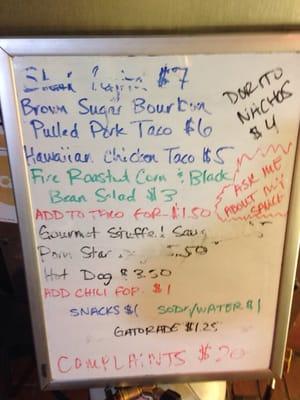 $7
Brown Sugar Bourbon
Pulled Pork Taco $6
Hawaiian Chicken Taco $5
Fire Roasted Corn & Black
Bean Salad $3
ADD TO TACO FOR $1.50
DORITO
NACHOS
$4
ASK ME
ABOUT MY
SAUCE
Gourmet Stuffed
Porn Star .50
Hot Dog $3.50
ADD CHILI FOR $1
SNACKS $1 SODA/WATER $1
GATORADE $1.25
COMPLAINTS $20